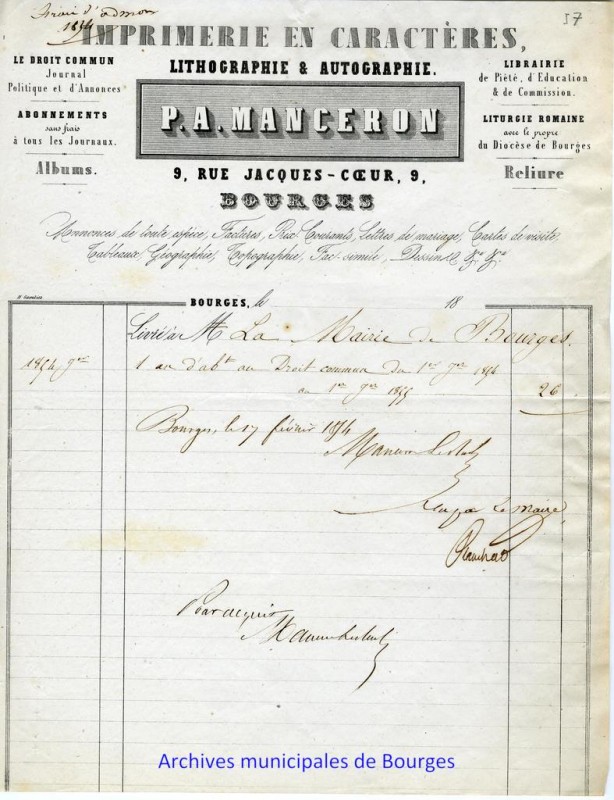 Frais d'admon
1854
57
IMPRIMERIE EN CARACTÈRES,
LITHOGRAPHIE & AUTOGRAPHIE.
LE DROIT COMMUN
Journal
Politique et d'Annonces
ABONNEMENTS
sans frais
à tous les Journaux.
Albums.
P. A. MANCERON
LIBRAIRIE
de Piété, d'Education
& de Commission.
LITURGIE ROMAINE
avec le propre
du Diocèse de Bourges
Reliure
9, RUE JACQUES-CŒUR, 9,
BOURGES
Annonces de toute espèce, Factures, Prix Courants, Lettres de mariage, Cartes de visite,
Tableaux, Géographie, Topographie, Fac-simile, Dessins &ca &ca
BOURGES, le 18
Livré à M La Mairie de Bourges.
1854 1 an d'abt au Droit commun du 1er 1854
au 1er 1855 26
Bourges, le 17 février 1854
Vu par le Maire
Planchat
Pour acquit
Archives municipales de Bourges